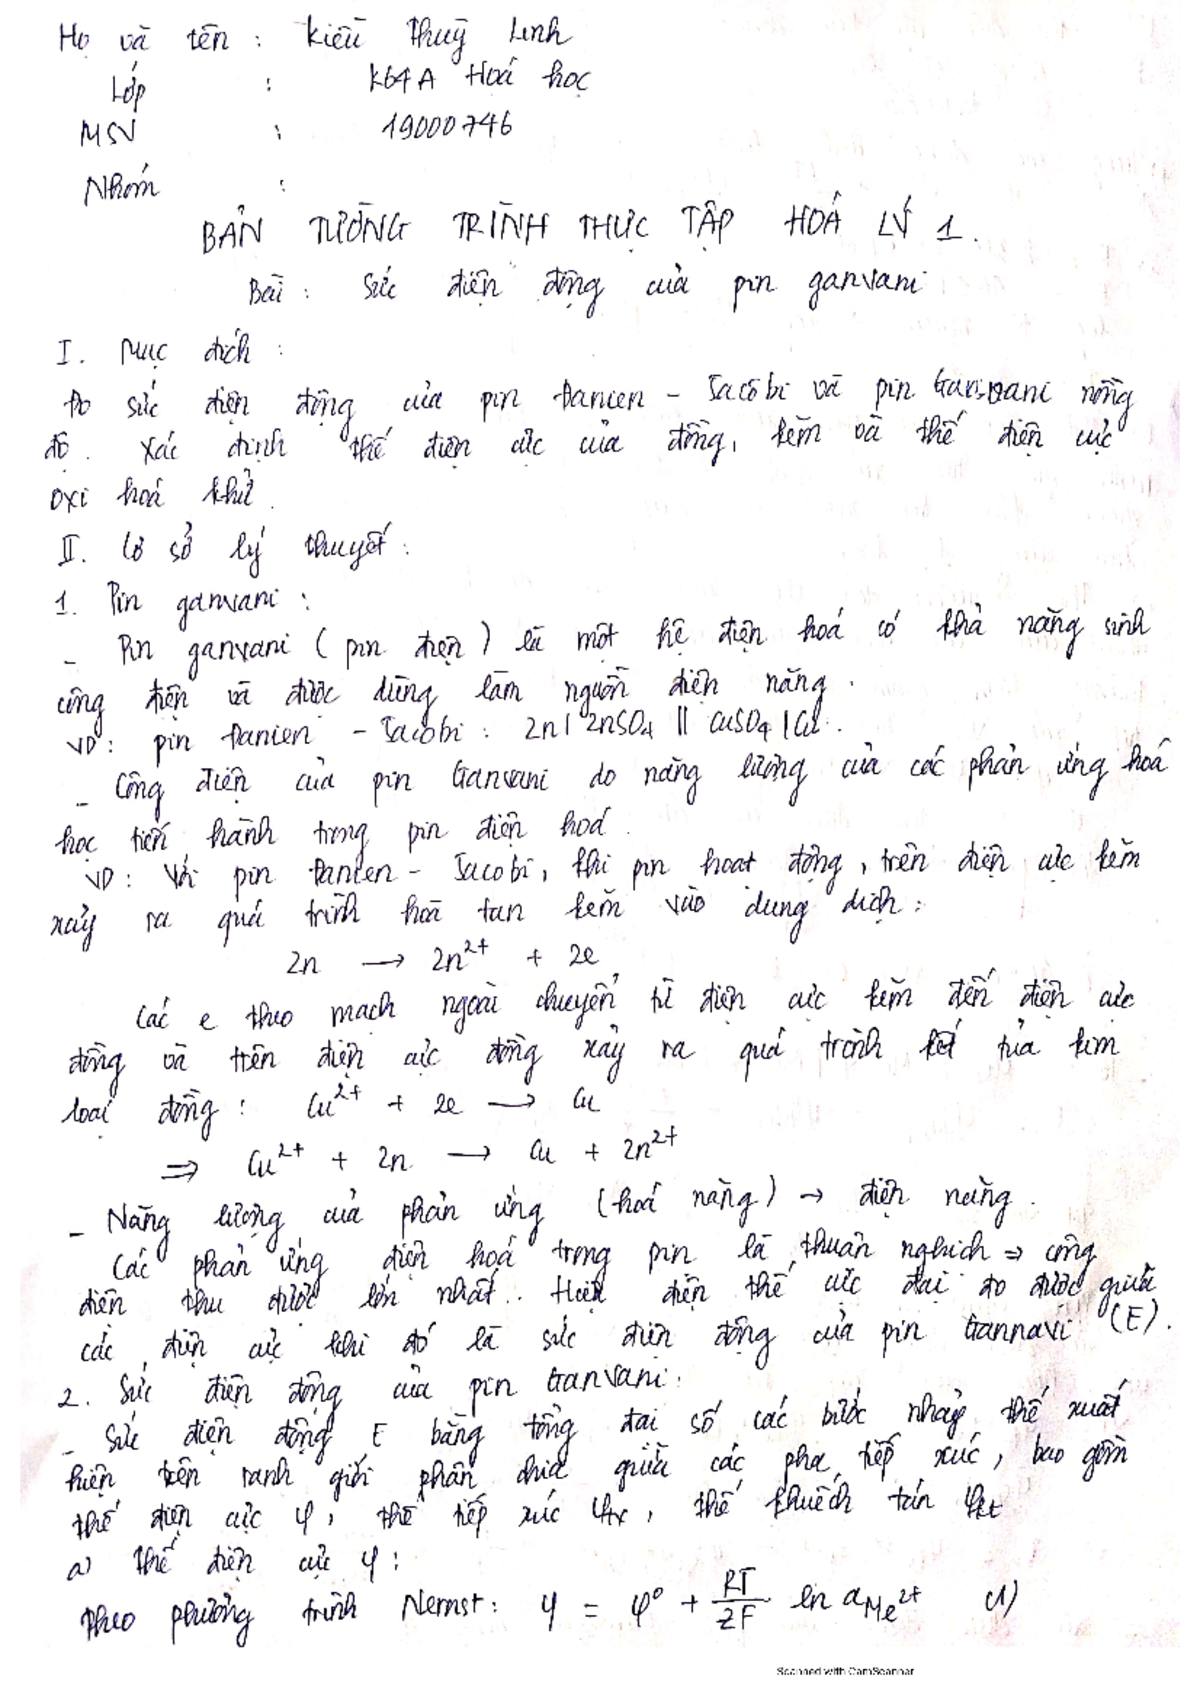 Họ và tên : Kiều Thuỳ Linh
Lớp : K64A Hoá học
MSV : 19000746
Nhóm :
BẢN TƯỜNG TRÌNH THỰC TẬP HOÁ LÝ 1.
Bài : Sức điện động của pin ganvani
I. Mục đích :
Đo sức điện động của pin Đanien - Jacobi và pin Ganvani nồng
độ. Xác định thế điện cực của đồng, kẽm và thế điện cực
oxi hoá khử.
II. Cơ sở lý thuyết :
1. Pin ganvani :
- Pin ganvani ( pin điện ) là một hệ điện hoá có khả năng sinh
công điện và được dùng làm nguồn điện năng.
VD : pin Đanien - Jacobi : Zn | ZnSO4 || CuSO4 | Cu.
- Công điện của pin Ganvani do năng lượng của các phản ứng hoá
học tiến hành trong pin điện hoá.
VD : Với pin Đanien - Jacobi, khi pin hoạt động, trên điện cực kẽm
xảy ra quá trình hoà tan kẽm vào dung dịch :
Zn → Zn²⁺ + 2e
Các e theo mạch ngoài chuyển từ điện cực kẽm đến điện cực
đồng và trên điện cực đồng xảy ra quá trình kết tủa kim
loại đồng : Cu²⁺ + 2e → Cu
⇒ Cu²⁺ + Zn → Cu + Zn²⁺
- Năng lượng của phản ứng (hoá năng) → điện năng.
Các phản ứng điện hoá trong pin là thuận nghịch ⇒ công
điện thu được lớn nhất. Hiệu điện thế cực đại đo được giữa
các điện cực khi đó là sức điện động của pin Gannavi (E).
2. Sức điện động của pin Ganvani :
- Sức điện động E bằng tổng đại số các bước nhảy thế xuất
hiện trên ranh giới phân chia giữa các pha tiếp xúc, bao gồm
thế điện cực φ, thế tiếp xúc φtx, thế khuếch tán φkt
a) Thế điện cực φ :
Theo phương trình Nernst : φ = φ⁰ + RT/ZF ln aMe²⁺ (1)
Scanned with CamScanner